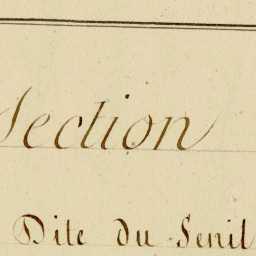 Section
Dite du Senil